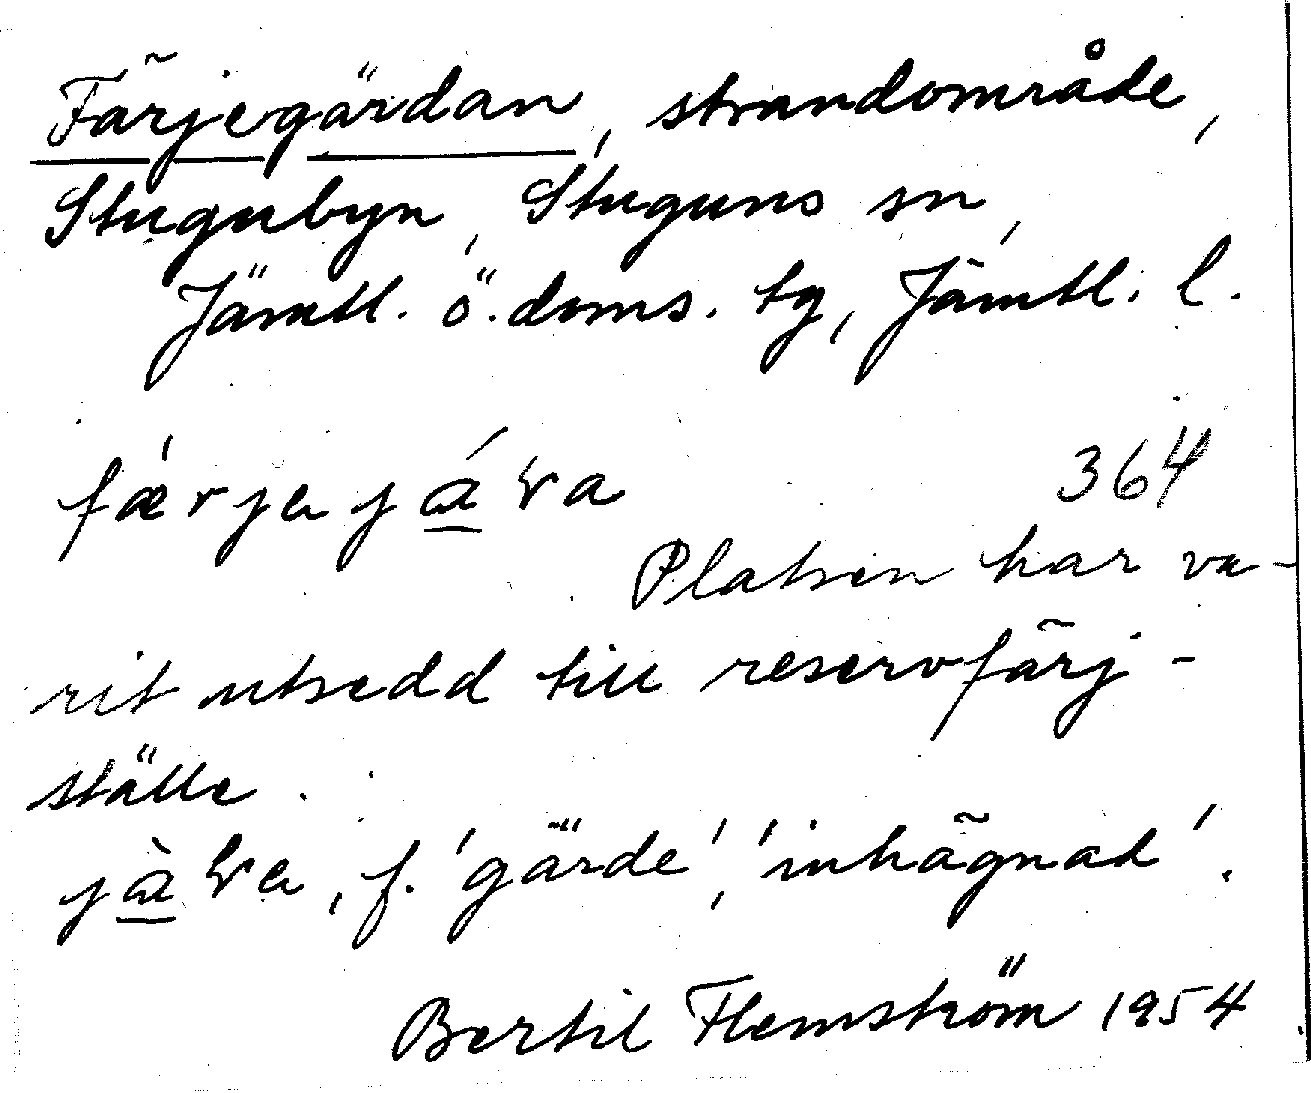 Färjegärdan, strandområde,
Stugubyn, Stuguns sn,
Jämtl. ö. doms. tg, Jämtl. l.
færjejæ̱va
364
Platsen har va-
rit utsedd till reservfärj-
ställe.
jæ̱va, f. 'gärde', 'inhägnad'.
Bertil Flemström 1954